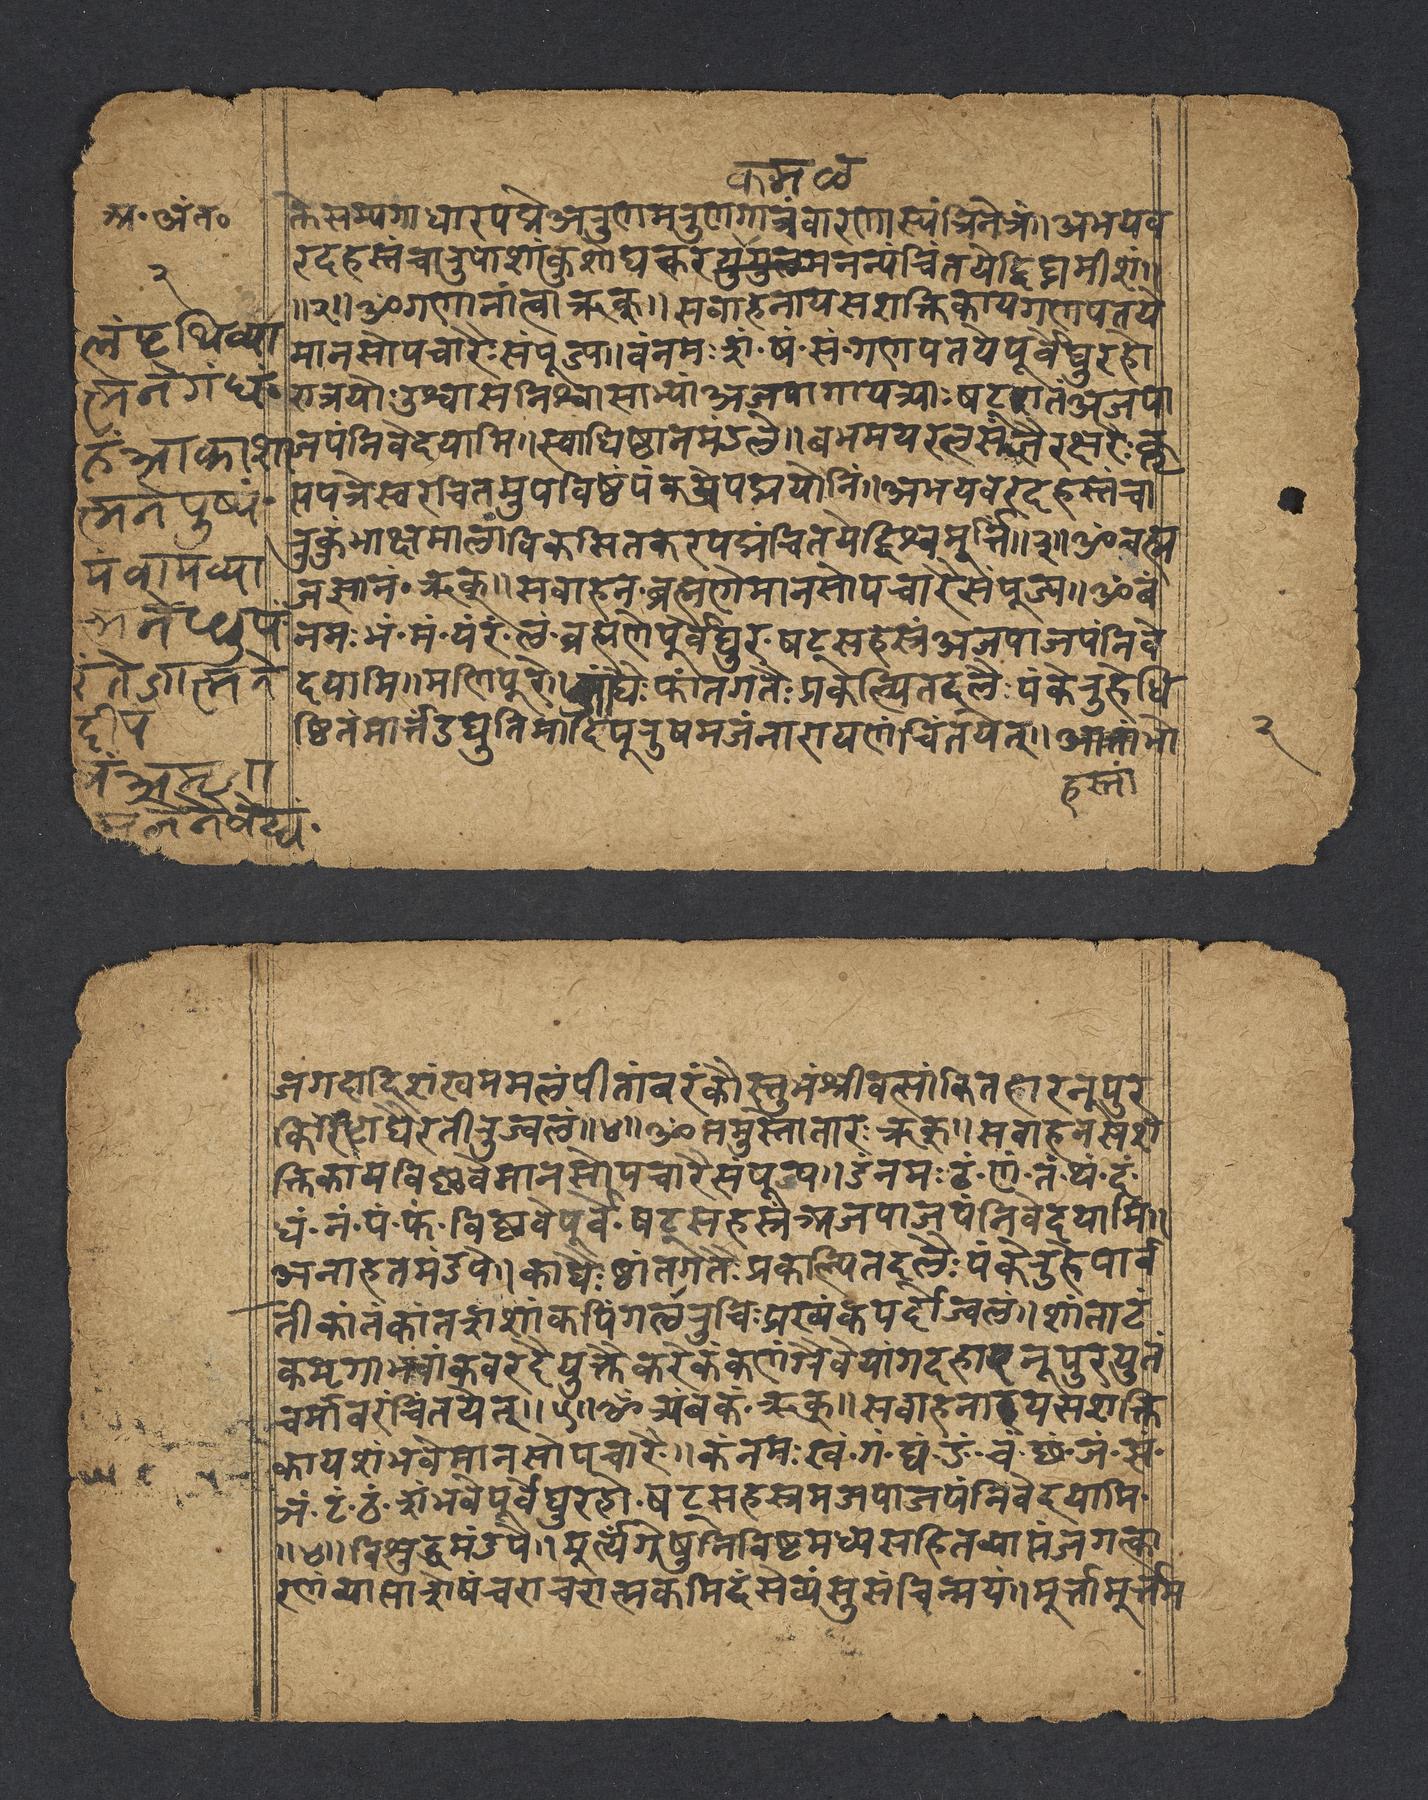 कमळ
अ॰अंत॰
२
क्तेसम्यगाधारपद्मेअरुणमरुणगात्रंवारणास्यंत्रिनेत्रं॥अभयव
रदहस्तंचारुपाशांकुशाढ्यक्तर मनन्यंचिंतयेद्विघ्नमीशं॥
॥२॥ॐगणानांत्वाऋक्॥सवाहनायसशक्तिकायगणपतये
मानसोपचारैःसंपूज्य॥वंनमःशं॰षं॰सं॰गणपतयेपूर्वेद्युरहो
रात्रयोःउश्वासनिश्वासाभ्यांअजपागायत्र्याःषट्शतंअजपा
जपंनिवेदयामि॥स्वाधिष्ठानमंडले॥बभमयरलसंस्थैरक्षरैःक्लृ
प्तपत्रेस्वरचितमुपविष्टंपंकजेपद्मयोनिं॥अभयवरदहस्तंचा
रुकुंभाक्षमालांविकसितकरपद्मंचिंतयेद्विश्वमूर्तिं॥३॥ॐब्रह्म
जज्ञानं॰ऋक्॥सवाहन॰ब्रह्मणेमानसोपचारैसंपूज्य॥ॐबं
नमःभं॰मं॰यंरं॰लं॰ब्रह्मणेपूर्वेद्युर॰षट्सहस्रंअजपाजपंनिवे
दयामि॥मणिपूरे॥ डाद्यैःफांतगतैःप्रकल्पितदलैःपंकेरुहेधि
ष्ठितंमार्त्तंडद्युतिमादिपूरुषमजंनारायणंचिंतयेत्॥ भो
हस्तां
२
लंपृथिव्या
त्मनेगंधं॰
हंआकाशा
त्मनेपुष्पं॰
यंवायव्या
त्मनेधुपं
रंतेजात्मने
दीपं
वंअमृता
त्मनेनैवेद्यं॰
जगदादिशंखममलंपीतांबरंकौस्तुभंश्रीवत्सांकितहारनूपुर
किरीटाद्यैरतीरुज्वलं॥४॥ॐतमुस्तोतारःऋक्॥सवाहनसश
क्तिकायविष्णवेमानसोपचारैसंपूज्य॥डंनमःढं॰णं॰तं॰थं॰दं॰
धं॰नं॰पं॰फं॰विष्णवेपूर्वे॰षट्सहस्रंअजपाजपंनिवेदयामि॥
अनाहतमंडपे॥काद्यैःष्ठांतगतैःप्रकल्पितदलैःपंकेरुहेपार्व
तीकांतंकांतशशांकपिंगलरुचिःप्रख्यंकपर्दोज्वलं॥शांताटं
कमृगाभयांकवरदैर्युक्तैकरैकंकणंग्रैवेयांगदहारनूपुरयुतं
चर्मांबरंचिंतयेत्॥५॥ॐत्र्यंबकं॰ऋक्॥सवाहनायसशक्ति
कायशंभवेमानसोपचारैः॥कंनमःखं॰गं॰घं॰ङं॰चं॰छं॰जं॰झं॰
ञं॰टं॰ठं॰शंभवेपूर्वेद्युरहो॰षट्सहस्त्रमजपाजपंनिवेदयामि॰
॥४॥विशुद्धमंडपे॥मूर्त्यंगेषुनिविष्टमध्यसहितव्याप्तंजगत्का
रणंव्याप्ताशेषंचराचरात्मकमिदंसेव्यंसुसंचिन्मयं॥मूर्त्तामूर्त्तम